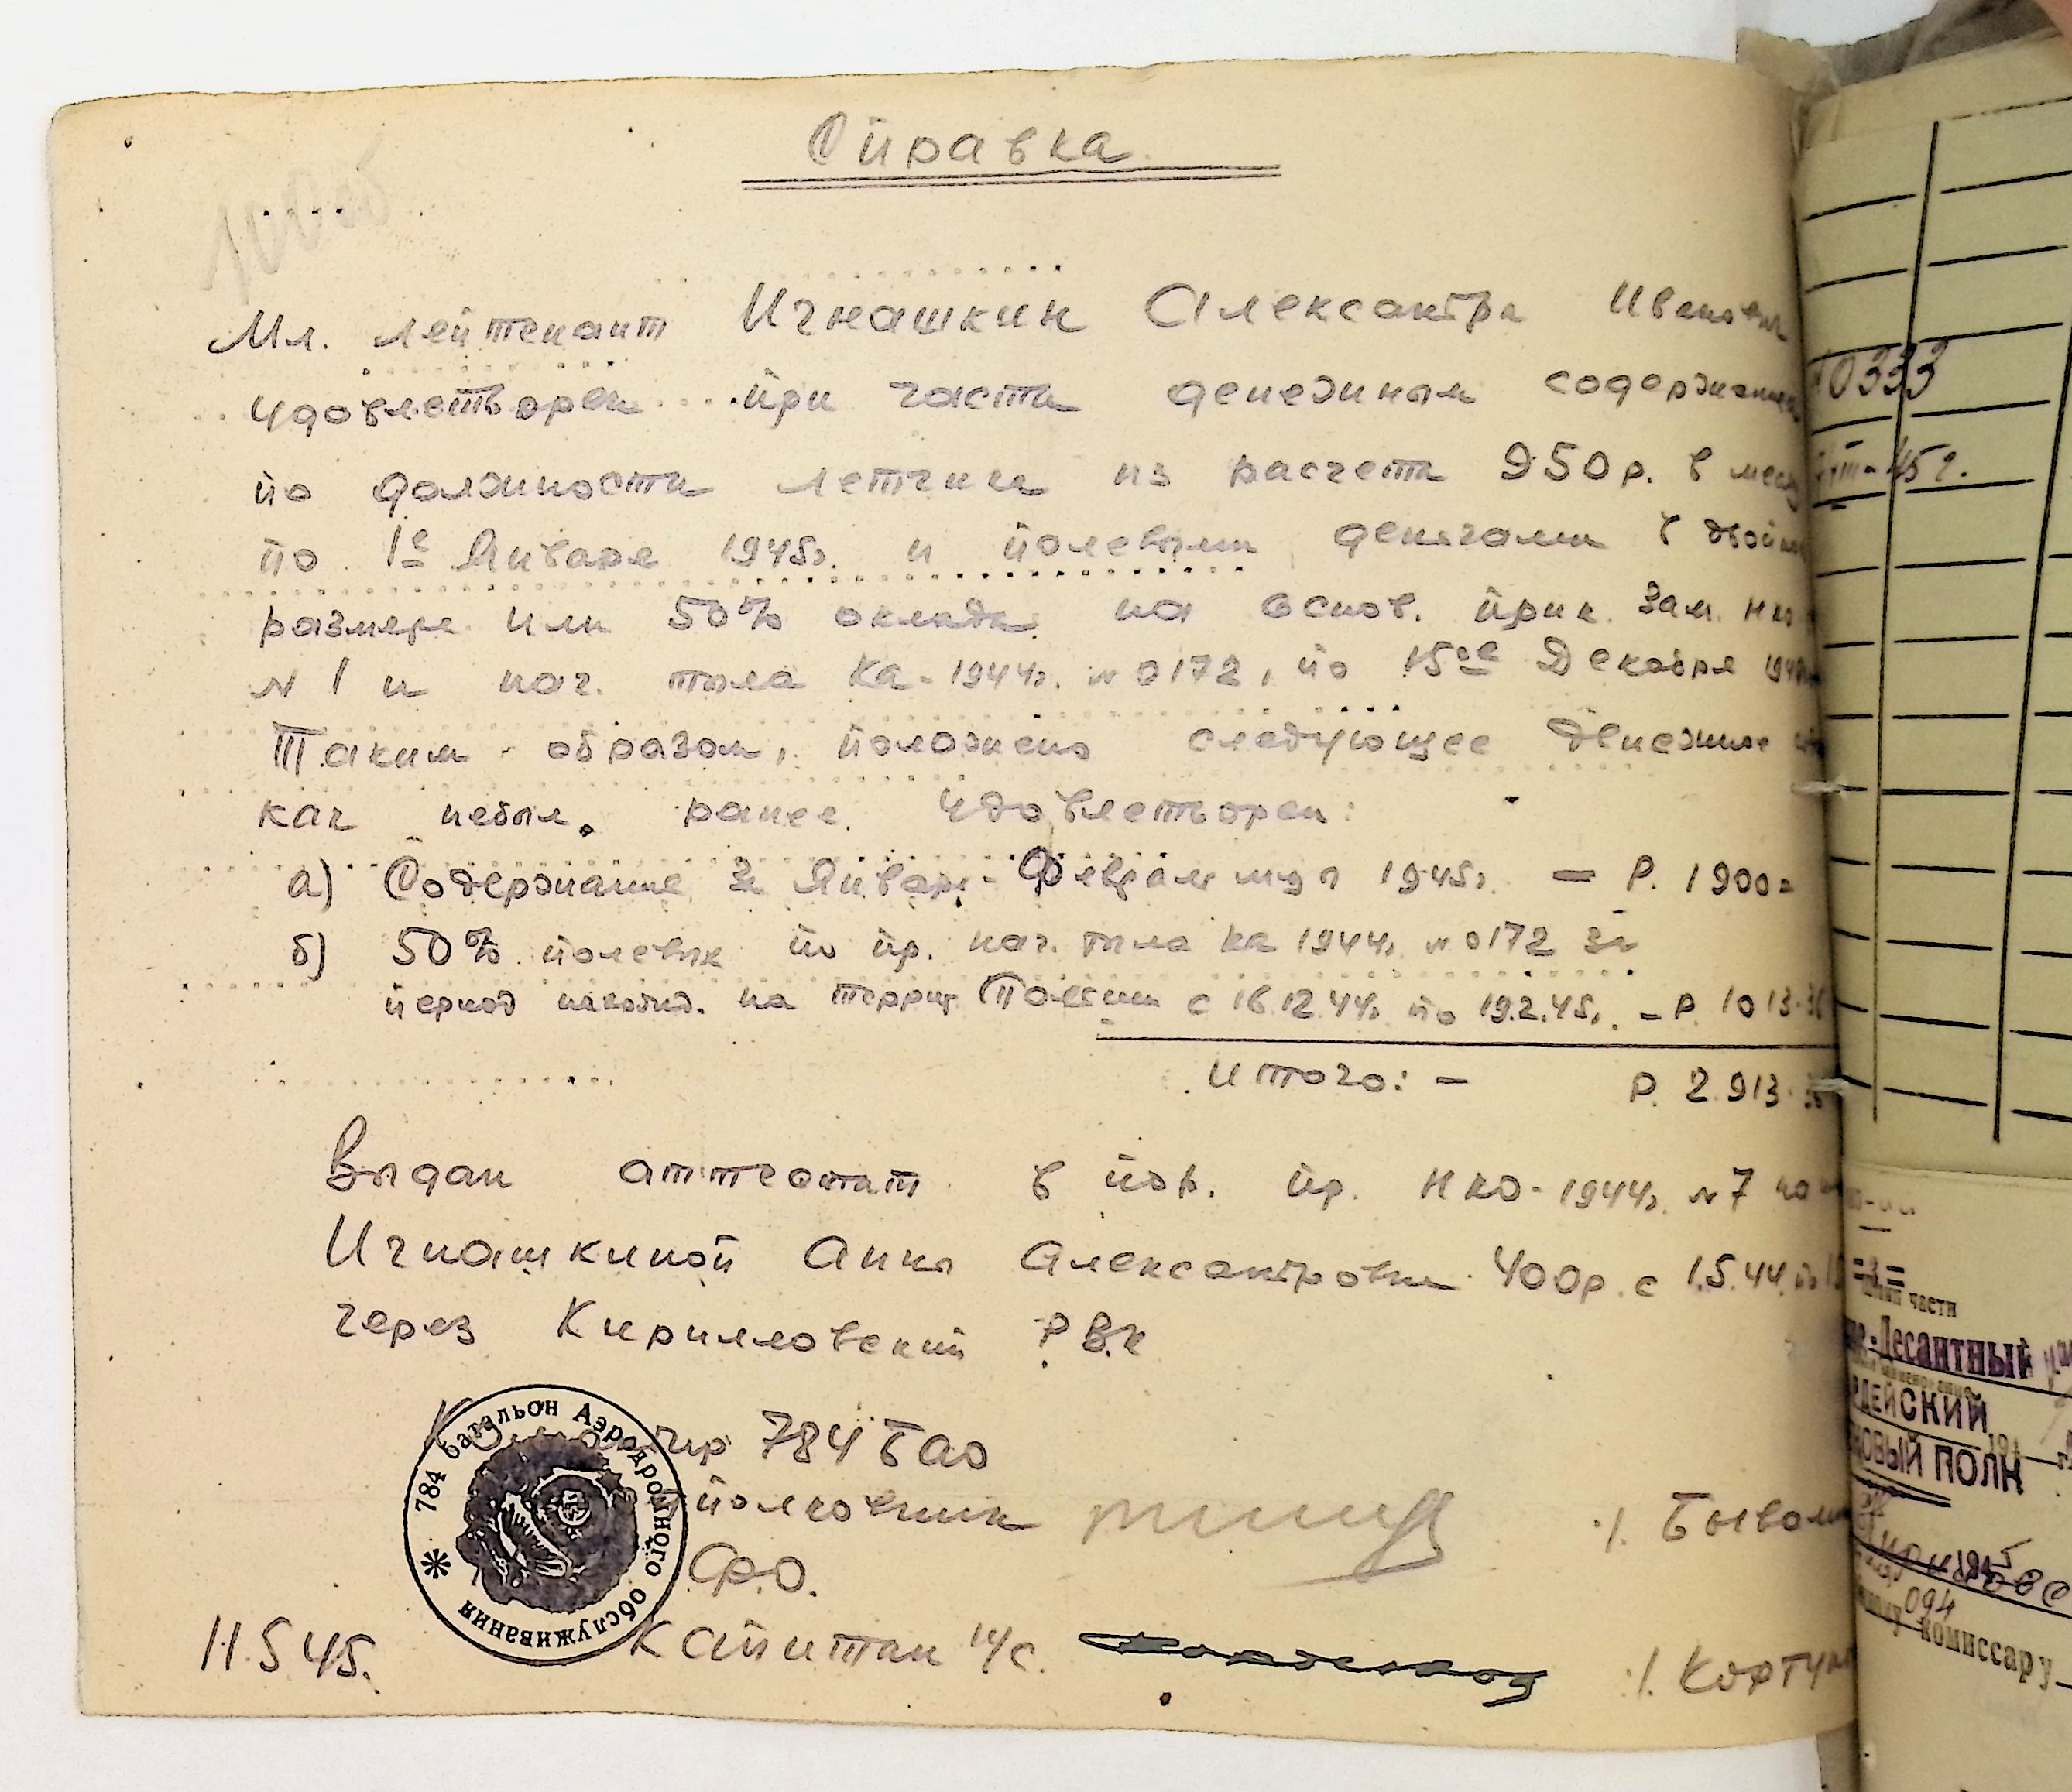 Справка
Мл. лейтенант Игнашкин Александр Иванович
удовлетворен при части денежным содержанием
по должности летчика из расчета 950р. в месяц
по 1е Января 1945г. и полевыми деньгами в двойном
размере или 50% оклада на основ. прик. Зам. НКО
№ 1 и нач. тыла КА-1944г. №0172, по 15ое Декабря 1944
Таким образом, положено следующее денежное
как небыл ранее удовлетворен:
а) Содержание за Январь-Февраль м-ц 1945г. — Р. 1900=
б) 50% полевых по пр. нач. тыла КА 1944г. №0172 за
период находид. на террит. Польши с 16.12.44г. по 19.2.45г. — Р. 1013-36
Итого: — Р. 2.913-36
Выдан аттестат в пор. пр. НКО-1944г. №7 на
Игнашкиной Анны Александровны 400р. с 1.5.44 по
через Кирилловский РВК
Командир 784 Бао
полковник
Ф.О.
11.5.45. Капитан и/с.
784 батальон Аэродромного обслуживания
0333
45г.
части
Десантный
РДЕЙСКИЙ
ПОЛК
194
094
комиссару